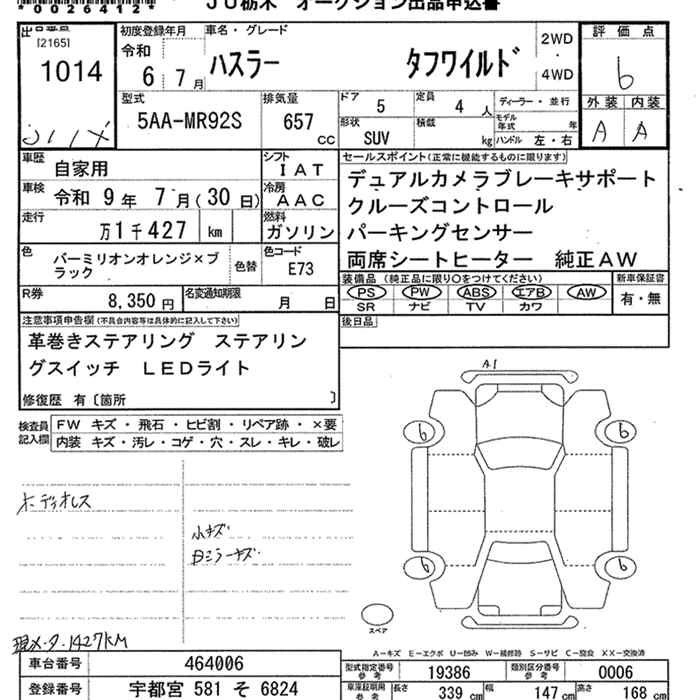 *0026412*
JU栃木 オークション出品申込書
出品番号
[2165]
1014
初度登録年月
令和
6年 7月
車名・グレード
ハスラー タフワイルド
2WD
・
4WD
評価点
6
外装 内装
A A
型式
5AA-MR92S
排気量
657
cc
ドア 5
定員 4人
ディーラー・並行
形状
SUV
積載
kg
モデル年式 年
ハンドル 左・右
車歴
自家用
シフト
IAT
車検
令和 9年 7月(30日)
冷房
AAC
走行
万1千427 km
燃料
ガソリン
色
バーミリオンオレンジ×ブラック
色替
色コード
E73
R券
8,350円
名変通知期限
月 日
セールスポイント(正常に機能するものに限ります)
デュアルカメラブレーキサポート
クルーズコントロール
パーキングセンサー
両席シートヒーター 純正AW
装備品(純正品に限り○をつけてください)
PS PW ABS エアB AW
SR ナビ TV カワ
新車保証書
有・無
後日品
注意事項申告欄(不具合内容等は具体的に記入して下さい)
革巻きステアリング ステアリン
グスイッチ LEDライト
修復歴 有〔箇所 〕
検査員記入欄
FW キズ・飛石・ヒビ割・リペア跡・×要
内装 キズ・汚レ・コゲ・穴・スレ・キレ・破レ
ホディオレス
小キズ
白ミラーキズ
現メータ1427KM
A1
6 6
6 6
スペア
A－キズ E－エクボ U－凹み W－補修跡 S－サビ C－腐食 XX－交換済
車台番号 464006
登録番号 宇都宮 581 そ 6824
型式指定番号 参考 19386
類別区分番号 参考 0006
車庫証明用 参考 長さ 339 cm 幅 147 cm 高さ 168 cm